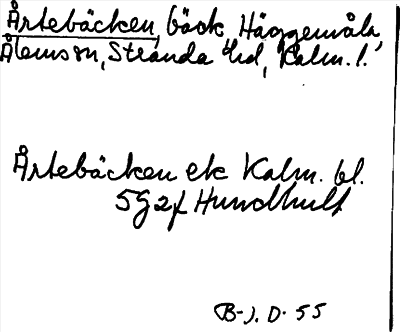 Årtebäcken, bäck, Häggemåla,
Ålems sn, Stranda hd, Kalm. l.
Årtebäcken ek Kalm. bl.
5G2f Hundhult
B-J. D. 55